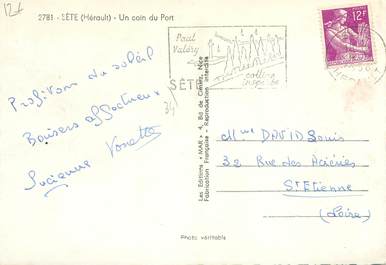 12f
2781 - SÈTE (Hérault) - Un coin du Port
Profitons du soleil
Baisers affectueux
Lucienne Yonette
Paul
Valéry
SÈTE
colline
inspirée
12F
Les Editions "MAR" 4, Bd de Cimiez, Nice
Fabrication Française - Reproduction interdite
Mme DAVID Louis
32 Rue des Aciéries
St Etienne
(Loire)
Photo véritable